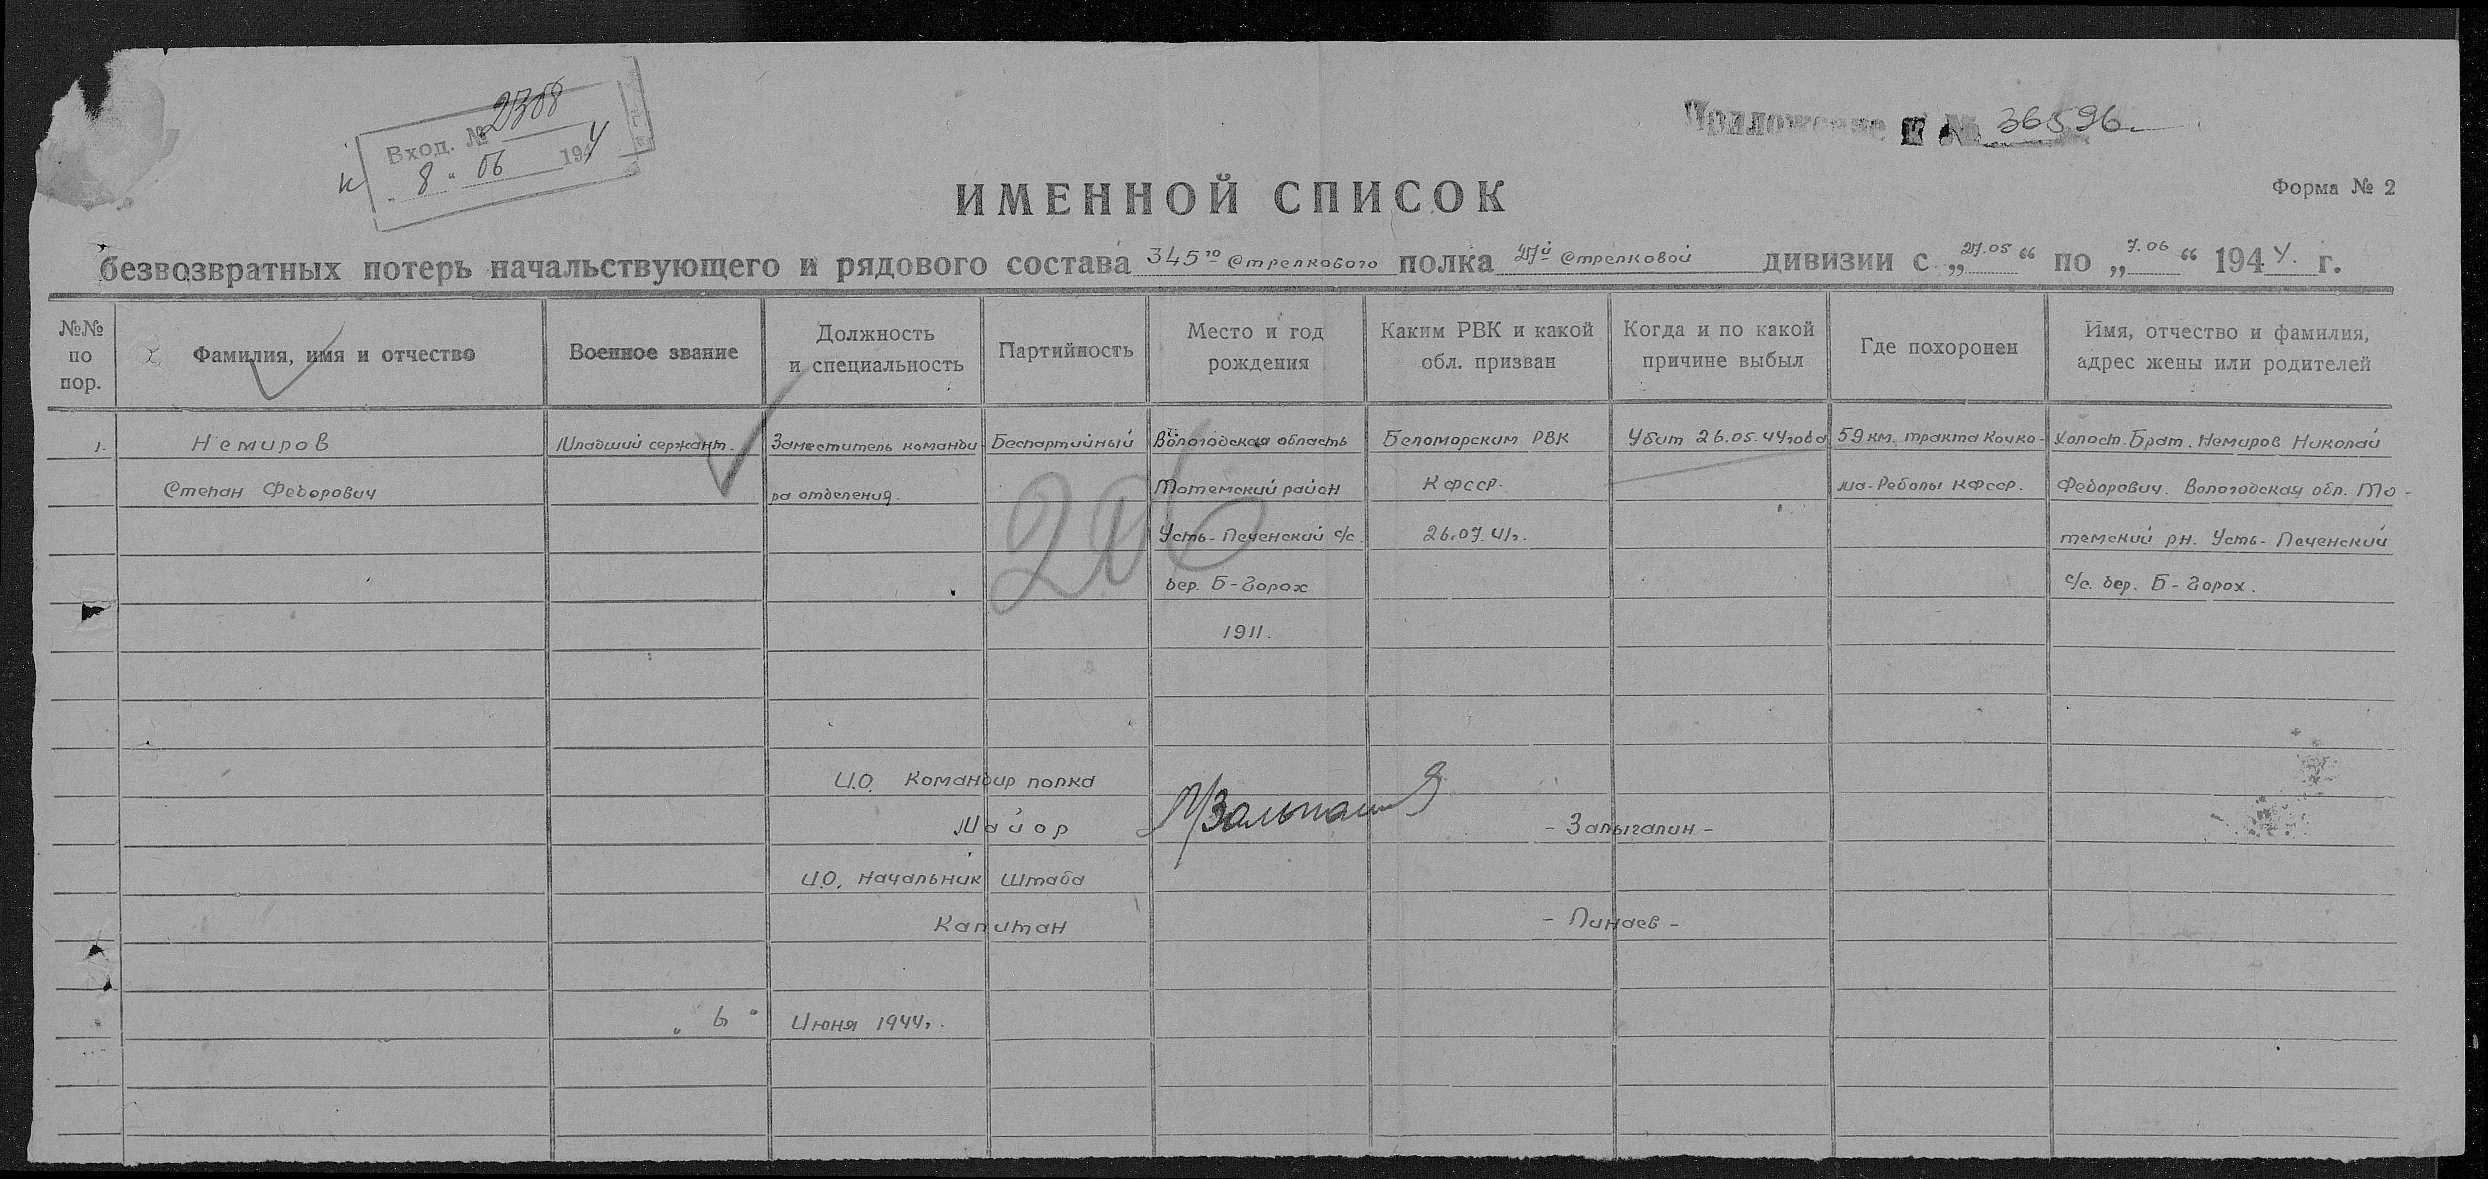 Вход. № 2308
8 " 06 1944
Приложение к № 36596
ИМЕННОЙ СПИСОК
Форма № 2
безвозвратных потерь начальствующего и рядового состава 345го стрелкового полка 27й стрелковой дивизии с „27.05“ по „7.06“ 1944 г.
№№ по пор.
Фамилия, имя и отчество
Военное звание
Должность и специальность
Партийность
Место и год рождения
Каким РВК и какой обл. призван
Когда и по какой причине выбыл
Где похоронен
Имя, отчество и фамилия, адрес жены или родителей
1. Немиров Младший сержант. Заместитель команди Беспартийный Вологодская область Беломорским РВК Убит 26.05.44года 59 км. тракта Кочко- Холост. Брат. Немиров Николай
Степан Федорович ра отделения. Тотемский район КФССР. ма-Реболы КФССР. Федорович. Вологодская обл. То-
Усть-Печенский с/с. 26.07.41г. темский рн. Усть-Печенский
дер. Б-Горох с/с. дер. Б-Горох.
1911.
206
И.О. Командир полка
Майор - Залыгалин -
И.О. Начальник Штаба
Капитан - Пинаев -
„ 6 " Июня 1944г.